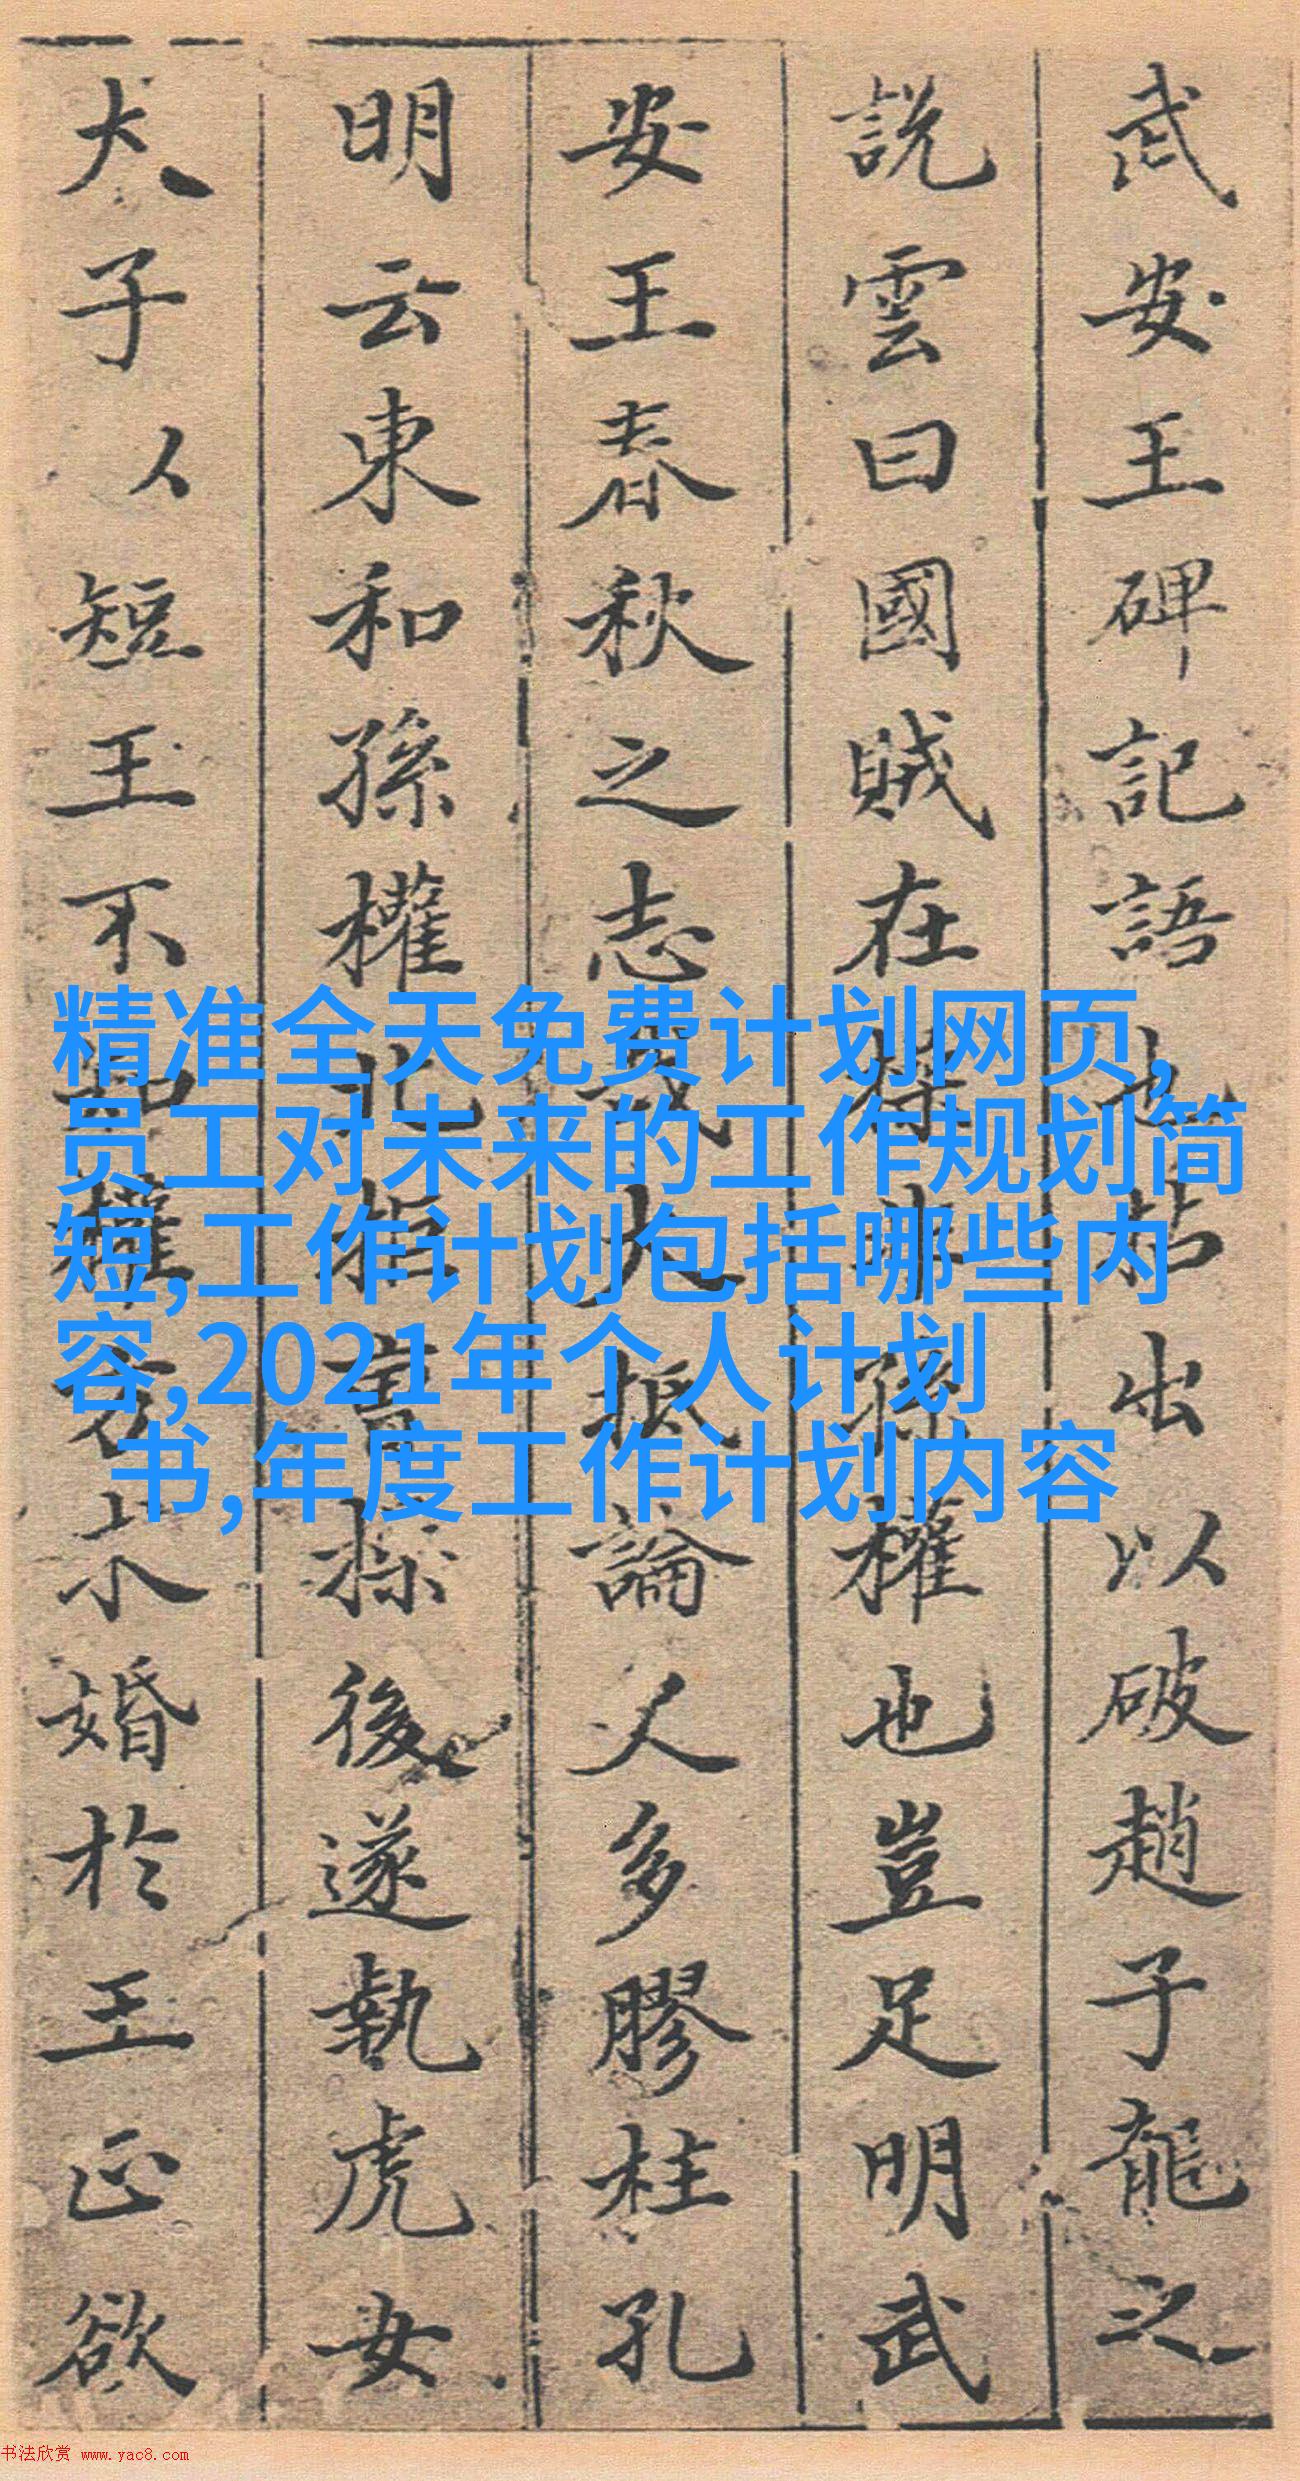 武安王碑記語也出以破趙子龍之
說雲曰國賊在操非孫權也豈足明武
安王春秋之志哉大抵論人多膠柱孔
明云東和孫權北拒曹操後遂執虎女
犬子以短王不知權方求婚於王正欲
精准全天免费计划网页,
员工对未来的工作规划简
短,工作计划包括哪些内
容,2021年个人计划
书,年度工作计划内容
书法欣赏 www.yac8.com